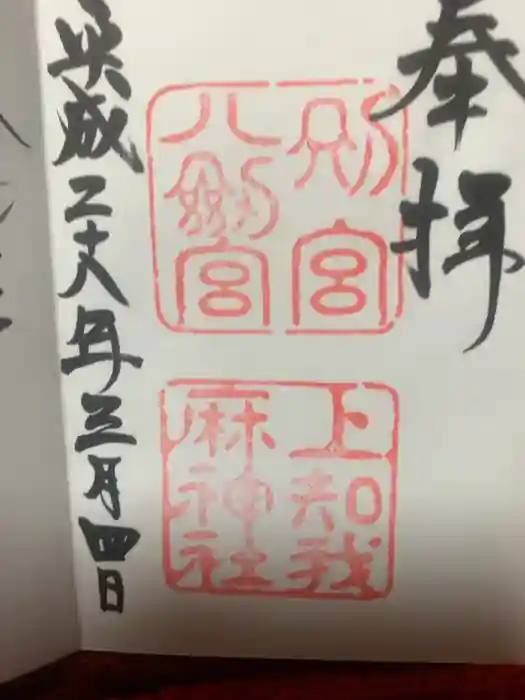 奉拝
別宮
八剣宮
上知我
麻神社
平成二十八年三月四日